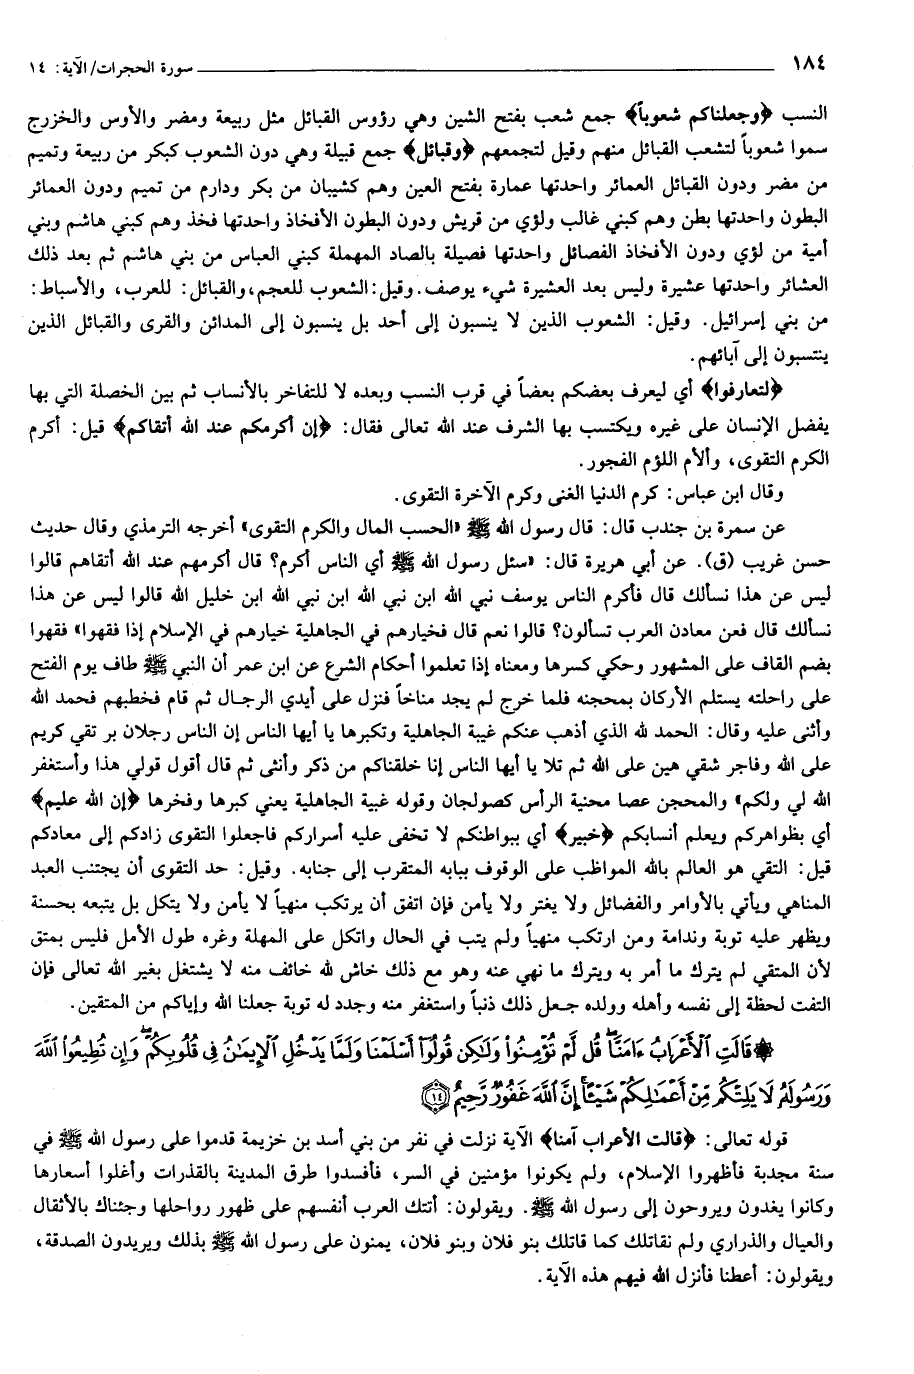 ١٨٤ سورة الحجرات/ الآية: ١٤
النسب ﴿وجعلناكم شعوباً﴾ جمع شعب بفتح الشين وهي رؤوس القبائل مثل ربيعة ومضر والأوس والخزرج
سموا شعوباً لتشعب القبائل منهم وقيل لتجمعهم ﴿وقبائل﴾ جمع قبيلة وهي دون الشعوب كبكر من ربيعة وتميم
من مضر ودون القبائل العمائر واحدتها عمارة بفتح العين وهم كشيبان من بكر ودارم من تميم ودون العمائر
البطون واحدتها بطن وهم كبني غالب ولؤي من قريش ودون البطون الأفخاذ واحدتها فخذ وهم كبني هاشم وبني
أمية من لؤي ودون الأفخاذ الفصائل واحدتها فصيلة بالصاد المهملة كبني العباس من بني هاشم ثم بعد ذلك
العشائر واحدتها عشيرة وليس بعد العشيرة شيء يوصف. وقيل: الشعوب للعجم، والقبائل: للعرب، والأسباط:
من بني إسرائيل. وقيل: الشعوب الذين لا ينسبون إلى أحد بل ينسبون إلى المدائن والقرى والقبائل الذين
ينتسبون إلى آبائهم.
﴿لتعارفوا﴾ أي ليعرف بعضكم بعضاً في قرب النسب وبعده لا للتفاخر بالأنساب ثم بين الخصلة التي بها
يفضل الإنسان على غيره ويكتسب بها الشرف عند الله تعالى فقال: ﴿إن أكرمكم عند الله أتقاكم﴾ قيل: أكرم
الكرم التقوى، وألأم اللؤم الفجور.
وقال ابن عباس: كرم الدنيا الغنى وكرم الآخرة التقوى.
عن سمرة بن جندب قال: قال رسول الله ﷺ «الحسب المال والكرم التقوى» أخرجه الترمذي وقال حديث
حسن غريب (ق). عن أبي هريرة قال: «سئل رسول الله ﷺ أي الناس أكرم؟ قال أكرمهم عند الله أتقاهم قالوا
ليس عن هذا نسألك قال فأكرم الناس يوسف نبي الله ابن نبي الله ابن نبي الله ابن خليل الله قالوا ليس عن هذا
نسألك قال فعن معادن العرب تسألون؟ قالوا نعم قال فخيارهم في الجاهلية خيارهم في الإسلام إذا فقهوا» فقهوا
بضم القاف على المشهور وحكي كسرها ومعناه إذا تعلموا أحكام الشرع عن ابن عمر أن النبي ﷺ طاف يوم الفتح
على راحلته يستلم الأركان بمحجنه فلما خرج لم يجد مناخاً فنزل على أيدي الرجال ثم قام فخطبهم فحمد الله
وأثنى عليه وقال: الحمد لله الذي أذهب عنكم غيبة الجاهلية وتكبرها يا أيها الناس إن الناس رجلان بر تقي كريم
على الله وفاجر شقي هين على الله ثم تلا يا أيها الناس إنا خلقناكم من ذكر وأنثى ثم قال أقول قولي هذا وأستغفر
الله لي ولكم» والمحجن عصا محنية الرأس كصولجان وقوله غيبة الجاهلية يعني كبرها وفخرها ﴿إن الله عليم﴾
أي بظواهركم ويعلم أنسابكم ﴿خبير﴾ أي ببواطنكم لا تخفى عليه أسراركم فاجعلوا التقوى زادكم إلى معادكم
قيل: التقي هو العالم بالله المواظب على الوقوف ببابه المتقرب إلى جنابه. وقيل: حد التقوى أن يجتنب العبد
المناهي ويأتي بالأوامر والفضائل ولا يغتر ولا يأمن فإن اتفق أن يرتكب منهياً لا يأمن ولا يتكل بل يتبعه بحسنة
ويظهر عليه توبة وندامة ومن ارتكب منهياً ولم يتب في الحال واتكل على المهلة وغره طول الأمل فليس بمتق
لأن المتقي لم يترك ما أمر به ويترك ما نهي عنه وهو مع ذلك خاش لله خائف منه لا يشتغل بغير الله تعالى فإن
التفت لحظة إلى نفسه وأهله وولده جعل ذلك ذنباً واستغفر منه وجدد له توبة جعلنا الله وإياكم من المتقين.
۞ قَالَتِ ٱلْأَعْرَابُ ءَامَنَّا ۖ قُل لَّمْ تُؤْمِنُوا۟ وَلَـٰكِن قُولُوٓا۟ أَسْلَمْنَا وَلَمَّا يَدْخُلِ ٱلْإِيمَـٰنُ فِى قُلُوبِكُمْ ۖ وَإِن تُطِيعُوا۟ ٱللَّهَ
وَرَسُولَهُۥ لَا يَلِتْكُم مِّنْ أَعْمَـٰلِكُمْ شَيْـًٔا ۚ إِنَّ ٱللَّهَ غَفُورٌ رَّحِيمٌ ﴿١٤﴾
قوله تعالى: ﴿قالت الأعراب آمنا﴾ الآية نزلت في نفر من بني أسد بن خزيمة قدموا على رسول الله ﷺ في
سنة مجدبة فأظهروا الإسلام، ولم يكونوا مؤمنين في السر، فأفسدوا طرق المدينة بالقذرات وأغلوا أسعارها
وكانوا يغدون ويروحون إلى رسول الله ﷺ. ويقولون: أتتك العرب أنفسهم على ظهور رواحلها وجئناك بالأثقال
والعيال والذراري ولم نقاتلك كما قاتلك بنو فلان وبنو فلان، يمنون على رسول الله ﷺ بذلك ويريدون الصدقة،
ويقولون: أعطنا فأنزل الله فيهم هذه الآية.